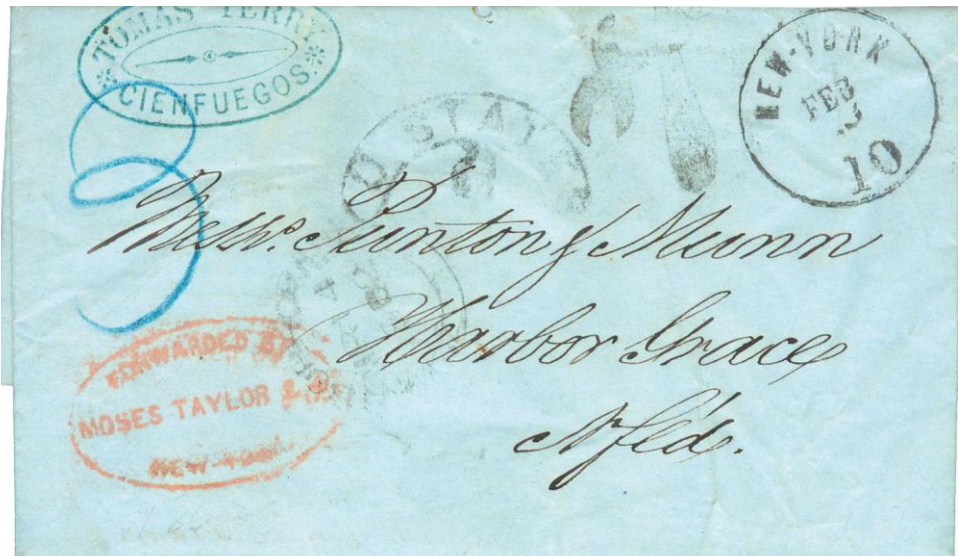 TOMAS TERRY
CIENFUEGOS
NEW-YORK
FEB
10
U. STATES
3
Messrs. Punton & Munn
Harbor Grace
Nfld.
FORWARDED BY
MOSES TAYLOR &
NEW-YORK